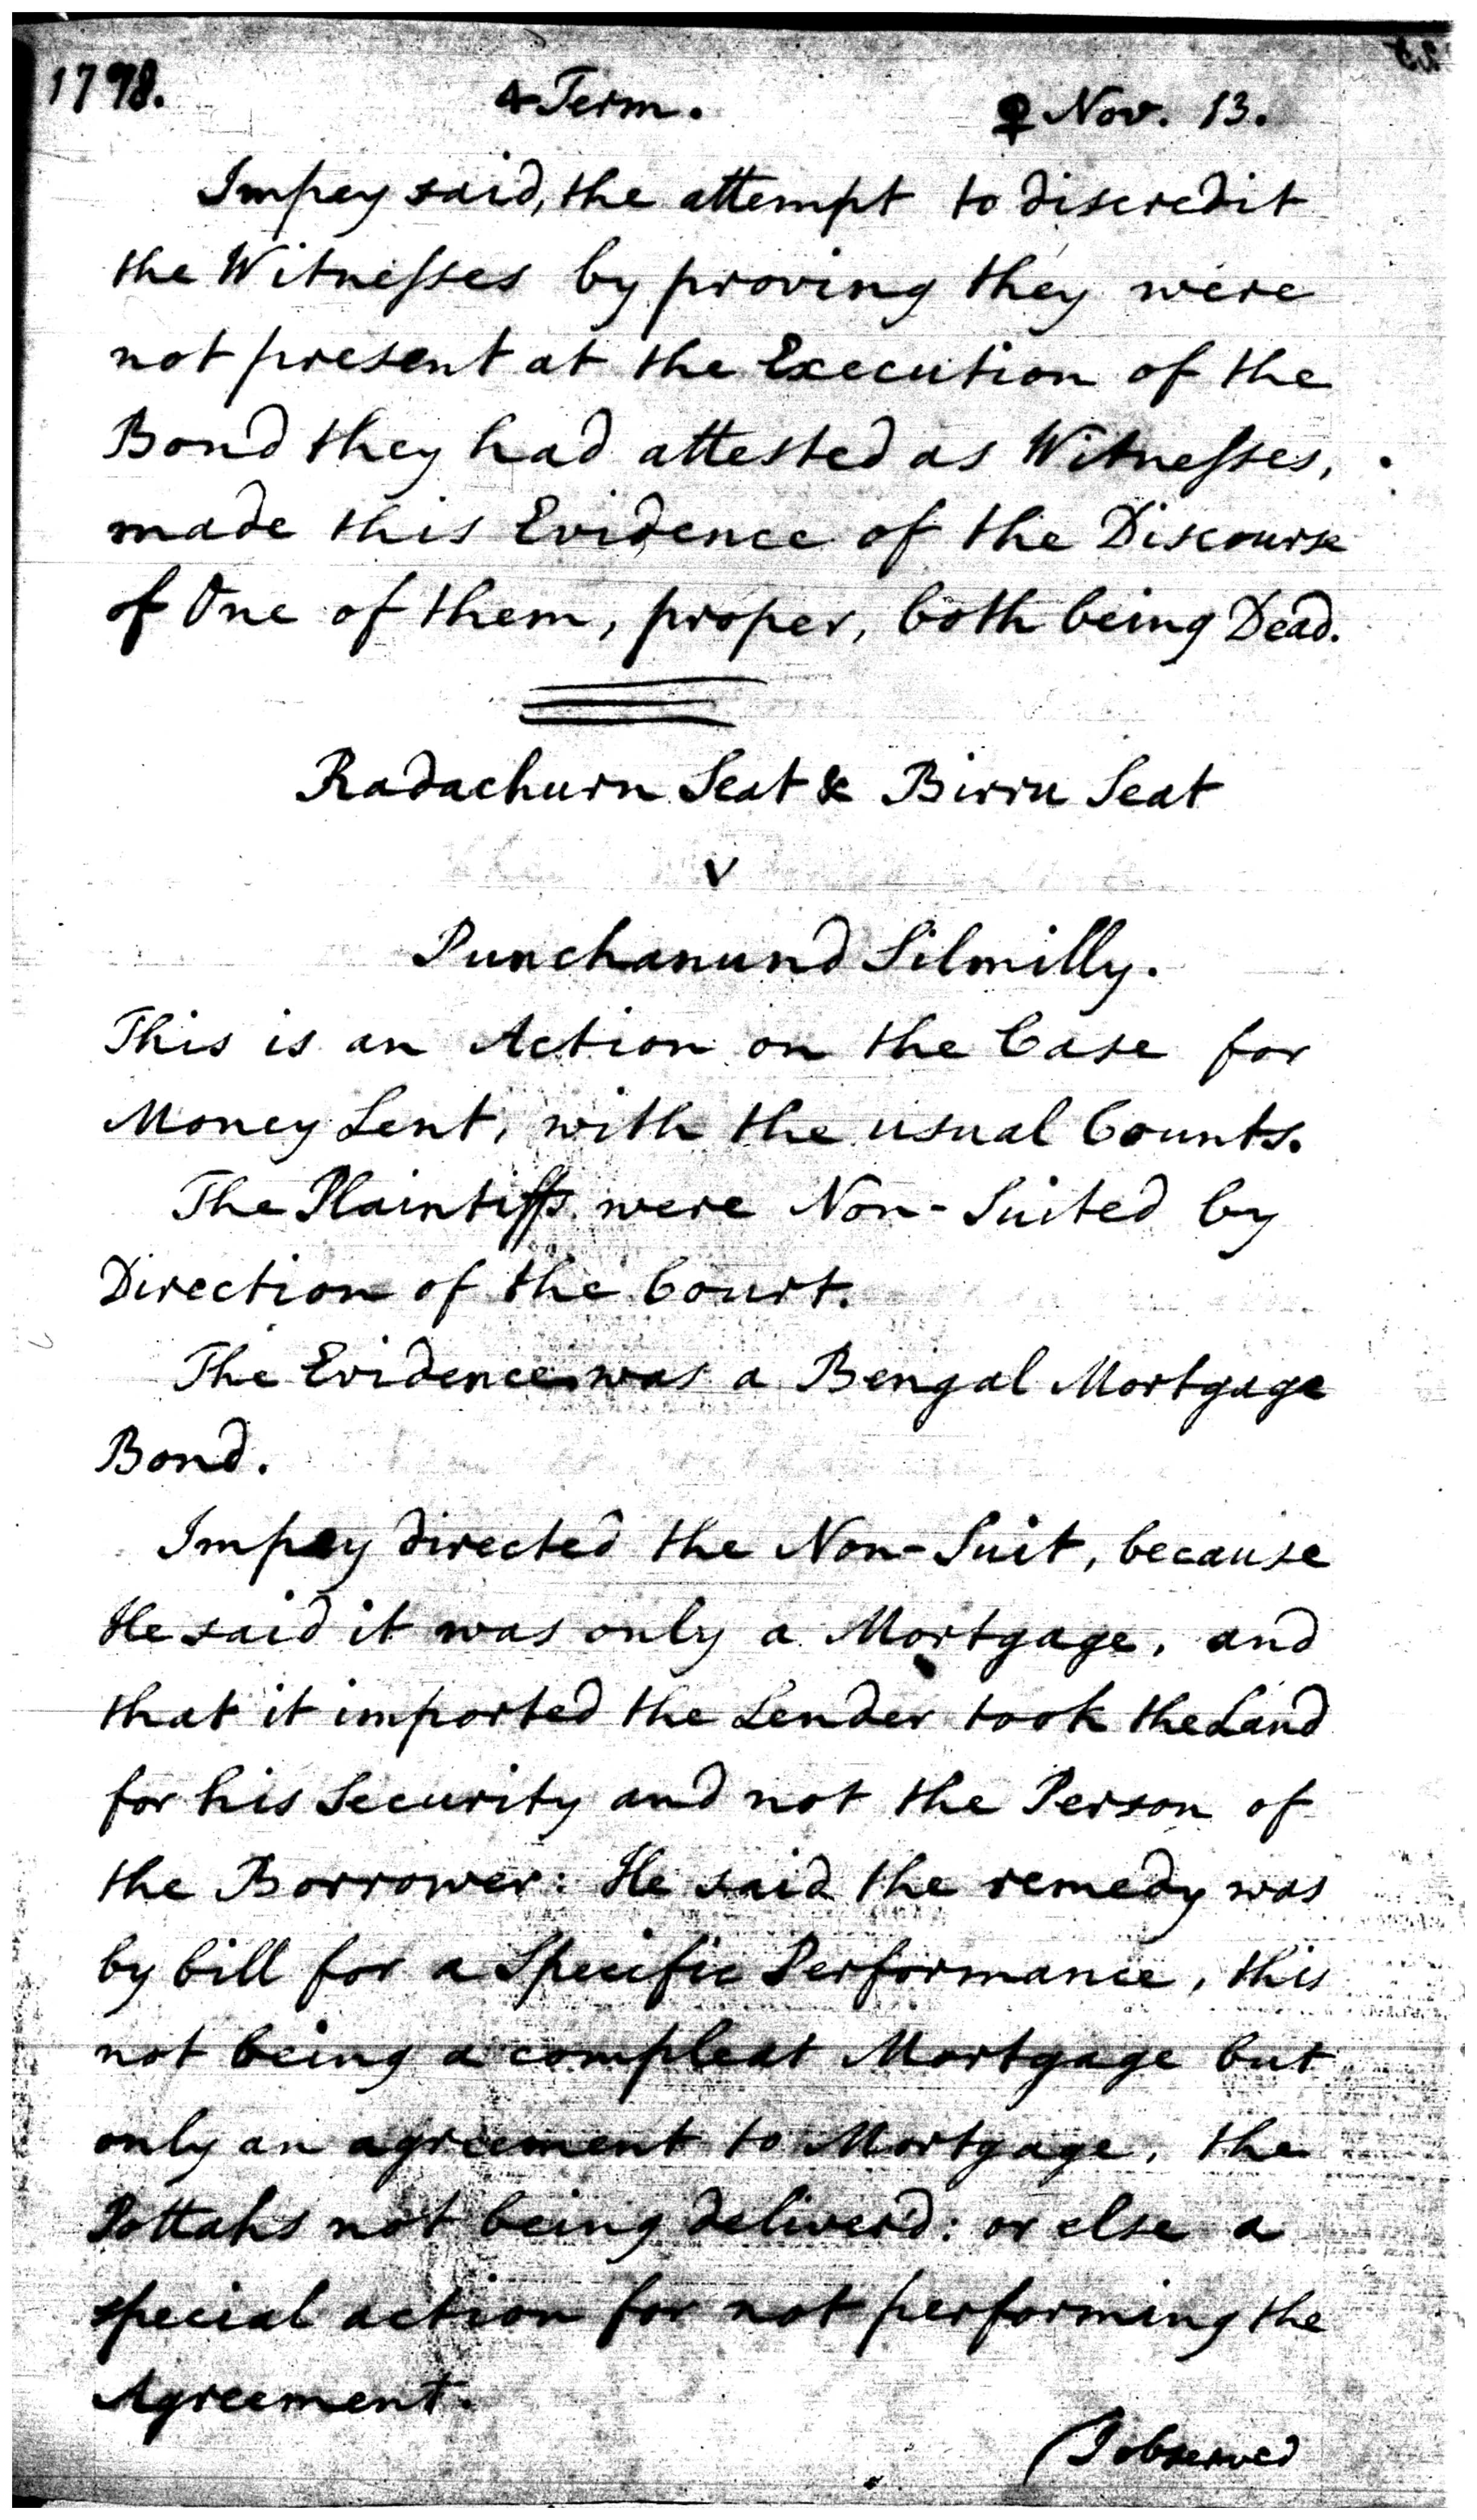 1778.
4 Term.
♀ Nov. 13.
Impey said, the attempt to discredit
the Witneſses by proving they were
not present at the Execution of the
Bond they had attested as Witneſses,
made this Evidence of the Discourse
of One of them, proper, both being Dead.
Radachurn Seat & Birru Seat
v
Punchanund Silmilly.
This is an Action on the Case for
Money Lent, with the usual Counts.
The Plaintiffs were Non-Suited by
Direction of the Court.
The Evidence was a Bengal Mortgage
Bond.
Impey directed the Non-Suit, because
He said it was only a Mortgage, and
that it imported the Lender took the Land
for his Security and not the Person of
the Borrower: He said the remedy was
by bill for a Specific Performance, this
not being a compleat Mortgage but
only an agreement to Mortgage, the
Pottahs not being deliver'd: or else a
special action for not performing the
Agreement.
(I observed